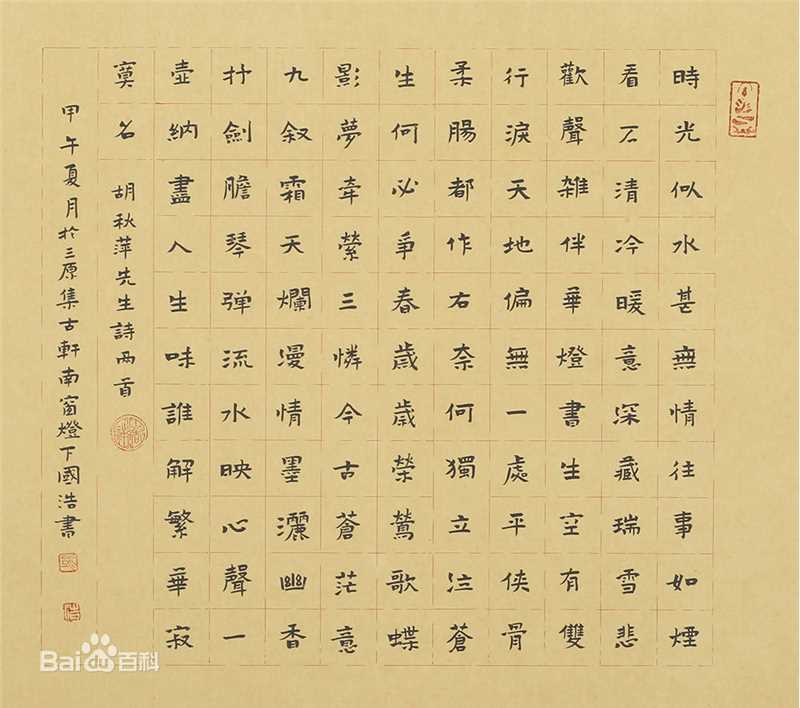 時光似水甚無情往事如煙
看不清冷暖意深藏瑞雪悲
歡聲雜伴華燈書生空有雙
行淚天地偏無一處平俠骨
柔腸都作右奈何獨立泣蒼
生何必爭春歲歲榮鶯歌蝶
影夢牽縈三憐今古蒼茫意
九叙霜天爛漫情墨灑幽香
抖劍膽琴弹流水映心聲一
壺納盡人生味誰解繁華寂
寞名
胡秋萍先生詩兩首
甲午夏月於三原集古軒南窗燈下國浩書
Bai百科